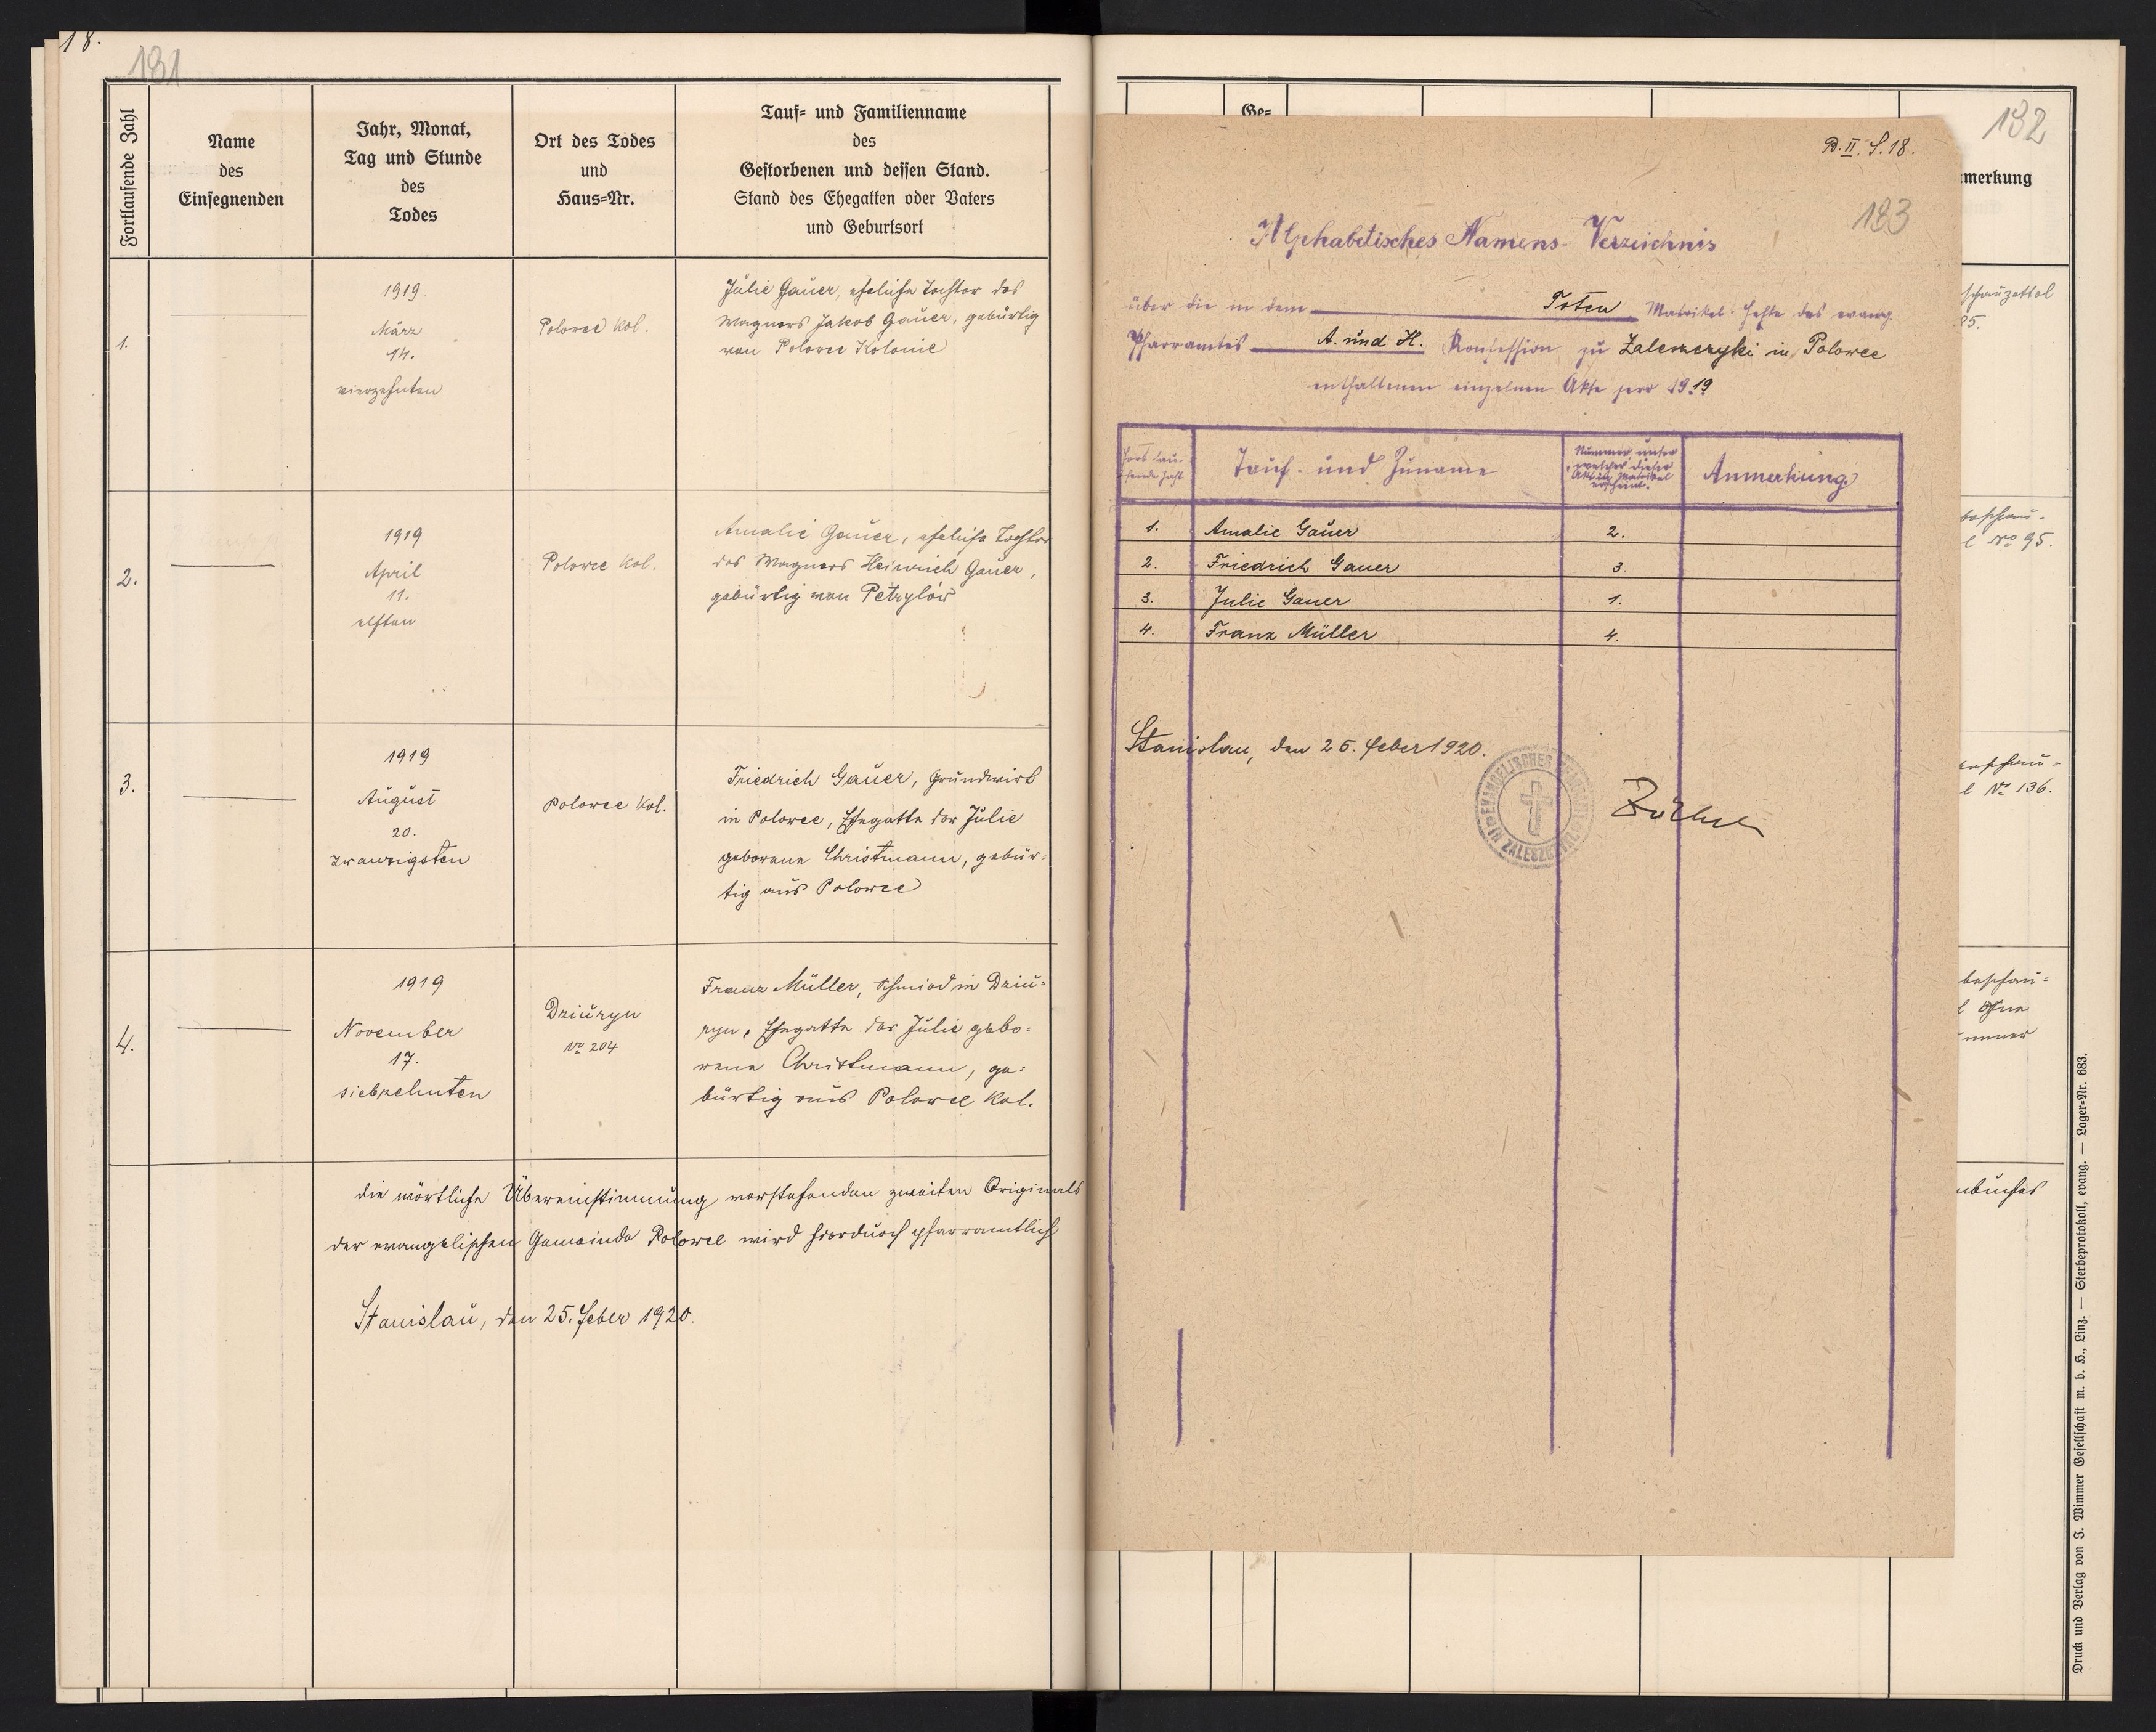 18.
181
Fortlaufende Zahl
Name
des
Einsegnenden
Jahr, Monat,
Tag und Stunde
des
Todes
Ort des Todes
und
Haus-Nr.
Tauf- und Familienname
des
Gestorbenen und dessen Stand.
Stand des Ehegatten oder Vaters
und Geburtsort
1.
1919
März
14.
vierzehnten
Polowce Kol.
Julie Gauer, eheliche Tochter des
Wagners Jakob Gauer, gebürtig
von Polowce Kolonie
2.
1919
April
11.
elften
Polowce Kol.
Amalie Gauer, eheliche Tochter
des Wagners Heinrich Gauer,
gebürtig von Petrylów
3.
1919
August
20.
zwanzigsten
Polowce Kol.
Friedrich Gauer, Grundwirt
in Polowce, Ehegatte der Julie
geborene Christmann, gebür-
tig aus Polowce
4.
1919
November
17.
siebzehnten
Dziuryn
No 204
Franz Müller, Schmied in Dziu-
ryn, Ehegatte der Julie gebo-
rene Christmann, ge-
bürtig aus Polowce Kol.
die wörtliche Übereinstimmung vorstehenden zweiten Originals
der evangelischen Gemeinde Polowce wird hierdurch pfarramtlich
Stanislau, den 25. Feber 1920.
Ge-
132
merkung
schauzettel
85.
beschau-
l No 95.
beschau-
l No 136.
beschau-
l ohne
ummer
nbuches
B. II. S. 18.
183
Alphabetisches Namens-Verzeichnis
über die in dem Toten Matrikel-Hefte des evang.
Pfarramtes A. und H. Konfession zu Zaleszczyki in Polowce
enthaltenen einzelnen Akte pro 1919
Fortlau-
fende Zahl
Tauf- und Zuname
Nummer, unter
welcher dieser
Akt in Matrikel
erscheint.
Anmerkung
1. Amalie Gauer 2.
2. Friedrich Gauer 3.
3. Julie Gauer 1.
4. Franz Müller 4.
Stanislau, den 25. Feber 1920.
EVANGELISCHES PFARRAMT
IN ZALESZCZYKI
Druck und Verlag von J. Wimmer Gesellschaft m. b. H., Linz. — Sterbeprotokoll, evang. — Lager-Nr. 683.